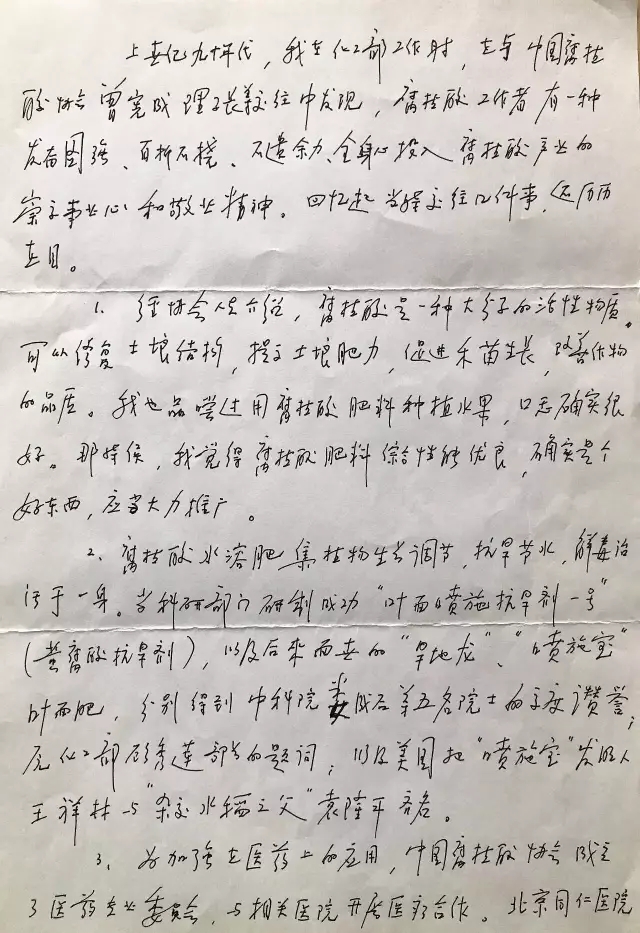 上世纪九十年代，我在化工部工作时，在与中国腐植
酸协会曾宪成理事长交往中发现，腐植酸工作者有一种
发奋图强、百折不挠、不遗余力、全身心投入腐植酸产业的
崇高事业心和敬业精神。回忆起当年交往几件事，还历历
在目。
1. 经协会人员介绍，腐植酸是一种大分子的活性物质。
可以修复土壤结构，提高土壤肥力，促进禾苗生长，改善作物
的品质。我也品尝过用腐植酸肥料种植水果，口感确实很
好。那时候，我觉得腐植酸肥料综合性能优良，确实是个
好东西，应当大力推广。
2. 腐植酸水溶肥集植物生长调节，抗旱节水，解毒治
污于一身。当科研部门研制成功“叶面喷施抗旱剂一号”
(黄腐酸抗旱剂)，以及后来面世的“旱地龙”、“喷施宝”
叶面肥，分别得到中科院娄成后等五名院士的高度赞誉；
原化工部顾秀莲部长的题词；以及美国把“喷施宝”发明人
王祥林与“杂交水稻之父”袁隆平齐名。
3、为加强在医药上的应用，中国腐植酸协会成立
了医药专业委员会，与相关医院开展医疗合作。北京同仁医院